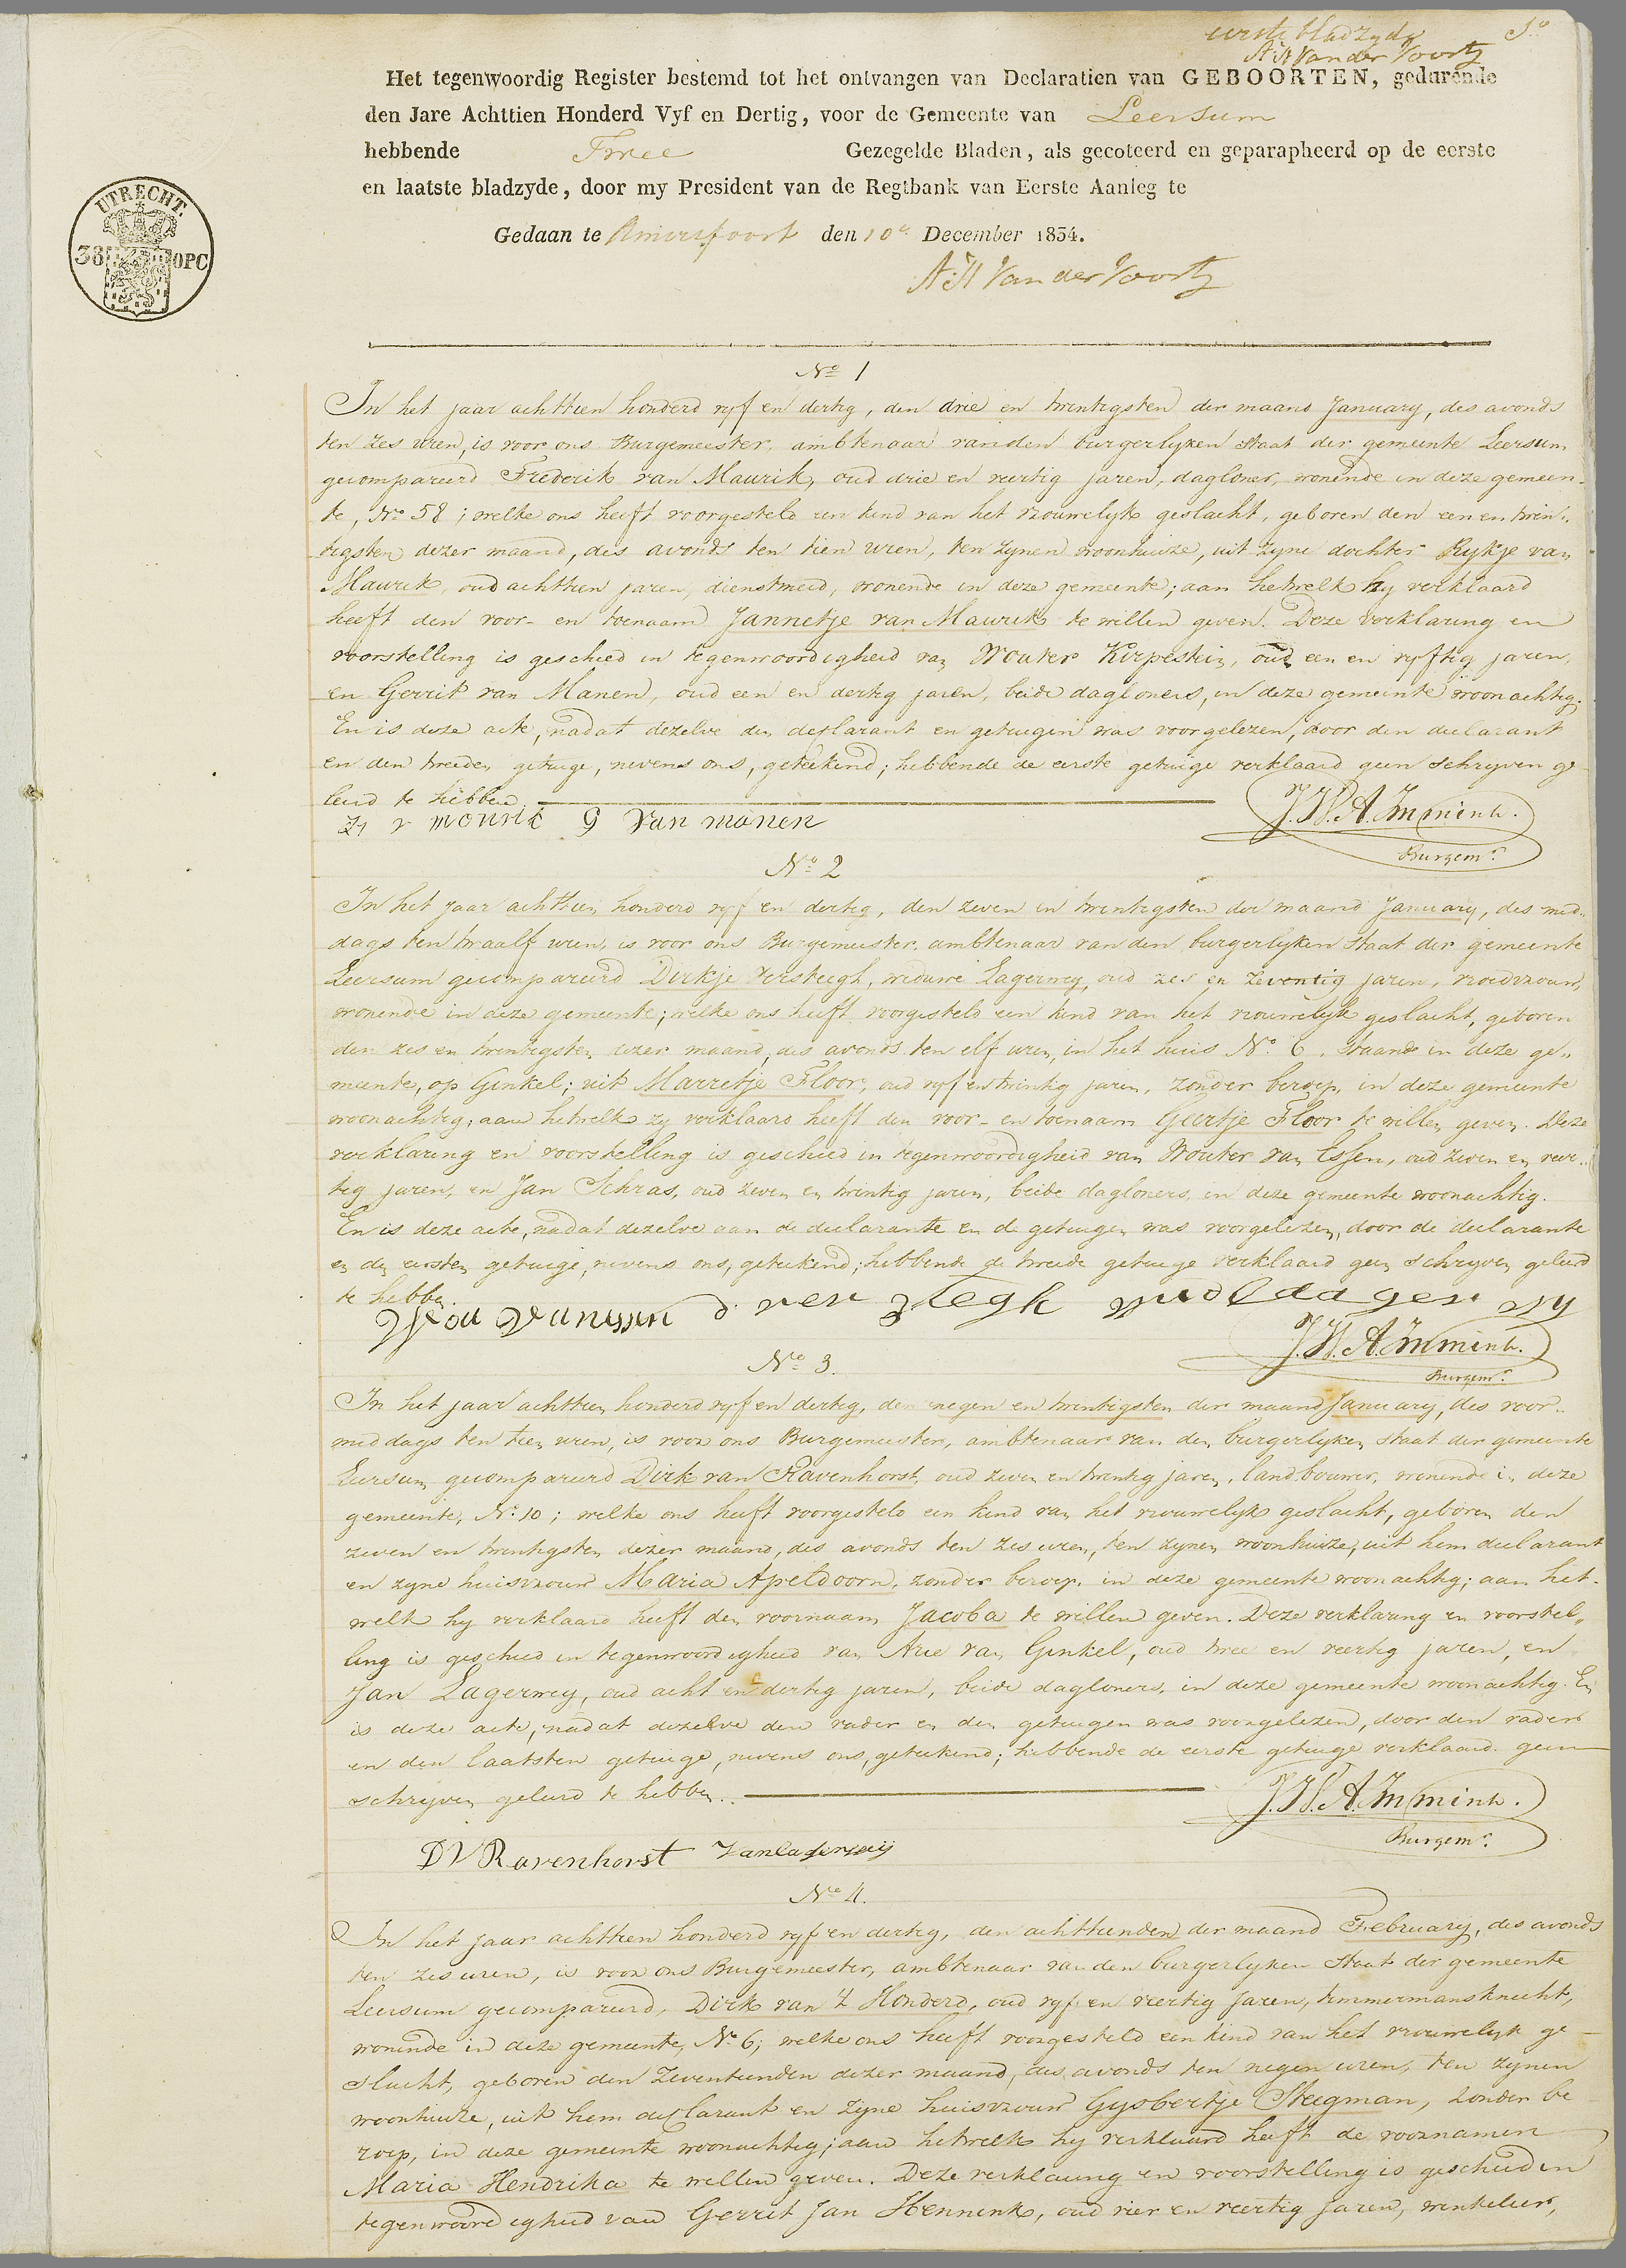 eerste bladzyde 1e
A:H Van der Voort
Het tegenwoordig Register bestemd tot het ontvangen van Declaratien van GEBOORTEN, gedurende
den Jare Achttien Honderd Vyf en Dertig, voor de Gemeente van Leersum
hebbende Twee Gezegelde Bladen, als gecoteerd en geparapheerd op de eerste
en laatste bladzyde, door my President van de Regtbank van Eerste Aanleg te
Gedaan te Amersfoort den 10e December 1834.
A:H Van der Voort
UTRECHT.
38 OPC
No 1
In het jaar achttien honderd vyf en dertig, den drie en twintigsten der maand January, des avonds
ten zes uren, is voor ons Burgemeester, ambtenaar van den burgerlyken Staat der gemeente Leersum
gecompareerd Frederik van Maurik, oud drie en veertig jaren, dagloner, wonende in deze gemeen-
te, No 58; welke ons heeft voorgesteld een kind van het vrouwelyk geslacht, geboren den een en twin„
tigsten dezer maand, des avonds ten tien uren, ten zynen woonhuize, uit zyne dochter Rykje van
Maurik, oud achttien jaren, dienstmeid, wonende in deze gemeente; aan hetwelk hy verklaard
heeft den voor- en toenaam Jannetje van Maurik te willen geven. Deze verklaring en
voorstelling is geschied in tegenwoordigheid van Wouter Kirpestein, oud een en vyftig jaren,
en Gerrit van Manen, oud een en dertig jaren, beide dagloners, in deze gemeente woonachtig.
En is deze acte, nadat dezelve den declarant en getuigen was voorgelezen, door den declarant
en den tweeden getuige, nevens ons, geteekend; hebbende de eerste getuige verklaard geen schryven ge
leerd te hebben.
v mourik G van manen J.H.A. Immink.
Burgemr.
No 2
In het jaar achttien honderd vyf en dertig, den zeven en twintigsten der maand January, des mid„
dags ten twaalf uren, is voor ons Burgemeester, ambtenaar van den burgerlyken Staat der gemeente
Leersum gecompareerd Dirkje Versteegh, weduwe Lagerwey, oud zes en zeventig jaren, vroedvrouw,
wonende in deze gemeente; welke ons heeft voorgesteld een kind van het vrouwelyk geslacht, geboren
den zes en twintigsten dezer maand, des avonds ten elf uren, in het huis No. 6, staande in deze ge„
meente, op Ginkel; uit Marretje Floor, oud vyf en twintig jaren, zonder beroep, in deze gemeente
woonachtig; aan hetwelk zy verklaard heeft den voor- en toenaam Geertje Floor te willen geven. Deze
verklaring en voorstelling is geschied in tegenwoordigheid van Wouter van Essen, oud zeven en veer„
tig jaren, en Jan Schras, oud zeven en twintig jaren, beide dagloners, in deze gemeente woonachtig.
En is deze acte, nadat dezelve aan de declarante en de getuigen was voorgelezen, door de declarante
en den eersten getuige, nevens ons, geteekend; hebbende de tweede getuige verklaard geen schryven geleerd
te hebben.
Wou van essen d. ver stegh
J.H.A. Immink.
Burgemr.
No 3.
In het jaar achttien honderd vyf en dertig, den negen en twintigsten der maand January, des voor„
middags ten tien uren, is voor ons Burgemeester, ambtenaar van den burgerlyken Staat der gemeente
Leersum gecompareerd Dirk van Ravenhorst, oud zeven en twintig jaren, landbouwer, wonende in deze
gemeente, No 10; welke ons heeft voorgesteld een kind van het vrouwelyk geslacht, geboren den
zeven en twintigsten dezer maand, des avonds ten zes uren, ten zynen woonhuize, uit hem declarant
en zyne huisvrouw Maria Apeldoorn, zonder beroep, in deze gemeente woonachtig; aan het-
welk hy verklaard heeft den voornaam Jacoba te willen geven. Deze verklaring en voorstel„
ling is geschied in tegenwoordigheid van Arie van Ginkel, oud twee en veertig jaren, en
Jan Lagerwey, oud acht en dertig jaren, beide dagloners, in deze gemeente woonachtig. En
is deze acte, nadat dezelve den vader en den getuigen was voorgelezen, door den vader
en den laatsten getuige, nevens ons, geteekend; hebbende de eerste getuige verklaard geen
schryven geleerd te hebben.
J.H.A. Immink.
Burgemr.
DV Ravenhorst Jan lagerweij
No 4.
In het jaar achttien honderd vyf en dertig, den achttienden der maand February, des avonds
ten zes uren, is voor ons Burgemeester, ambtenaar van den burgerlyken Staat der gemeente
Leersum gecompareerd, Dirk van 't Honderd, oud vyf en veertig jaren, timmermansknecht,
wonende in deze gemeente, No 6; welke ons heeft voorgesteld een kind van het vrouwelyk ge
slacht, geboren den zeventienden dezer maand, des avonds ten negen uren, ten zynen
woonhuize, uit hem declarant en zyne huisvrouw Gysbertje Steegman, zonder be
roep, in deze gemeente woonachtig; aan hetwelk hy verklaard heeft de voornamen
Maria Hendrika te willen geven. Deze verklaring en voorstelling is geschied in
tegenwoordigheid van Gerrit Jan Hennink, oud vier en veertig jaren, winkelier,